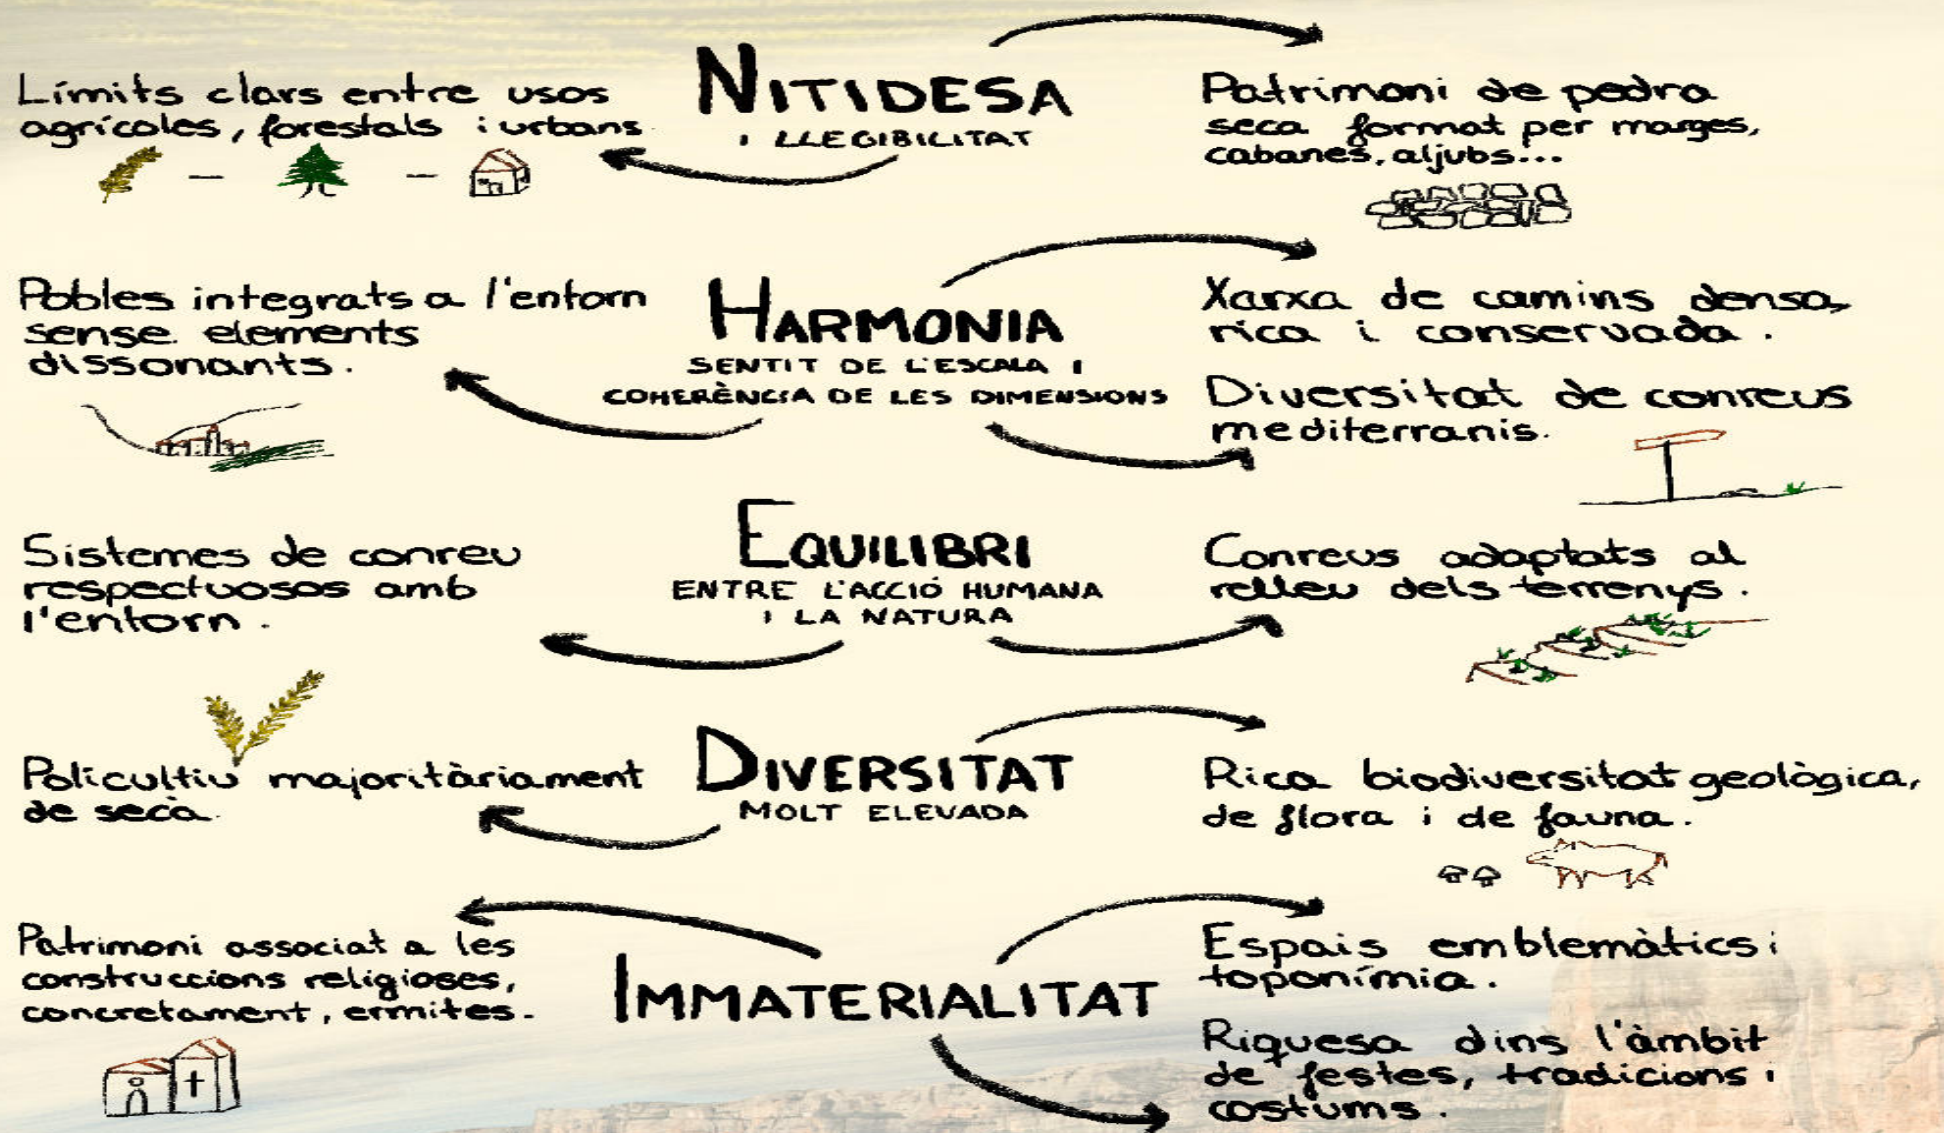 NITIDESA
I LLEGIBILITAT
Límits clars entre usos
agrícoles, forestals i urbans.
Patrimoni de pedra
seca format per marges,
cabanes, aljubs...
HARMONIA
SENTIT DE L'ESCALA I
COHERÈNCIA DE LES DIMENSIONS
Pobles integrats a l'entorn
sense elements
dissonants.
Xarxa de camins densa,
rica i conservada.
Diversitat de conreus
mediterranis.
EQUILIBRI
ENTRE L'ACCIÓ HUMANA
I LA NATURA
Sistemes de conreu
respectuosos amb
l'entorn.
Conreus adaptats al
relleu dels terrenys.
DIVERSITAT
MOLT ELEVADA
Policultiu majoritàriament
de secà.
Rica biodiversitat geològica,
de flora i de fauna.
IMMATERIALITAT
Patrimoni associat a les
construccions religioses,
concretament, ermites.
Espais emblemàtics i
toponímia.
Riquesa dins l'àmbit
de festes, tradicions i
costums.